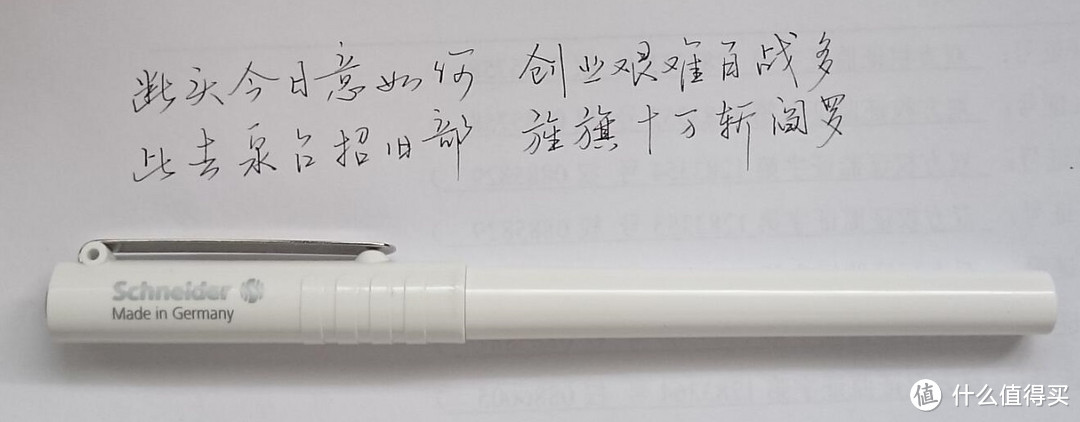 断头今日意如何 创业艰难百战多
此去泉台招旧部 旌旗十万斩阎罗
Schneider
Made in Germany
值 什么值得买